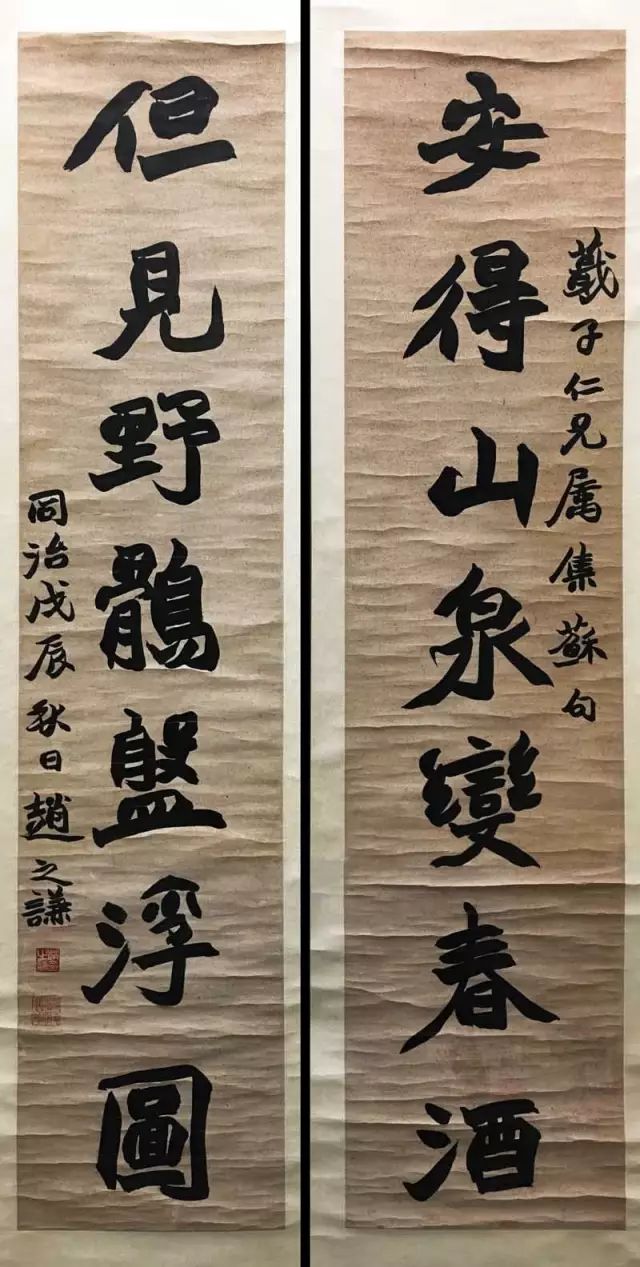 安得山泉變春酒
子仁兄属集蘇句
但見野鶻盤浮圖
同治戊辰秋日趙之謙